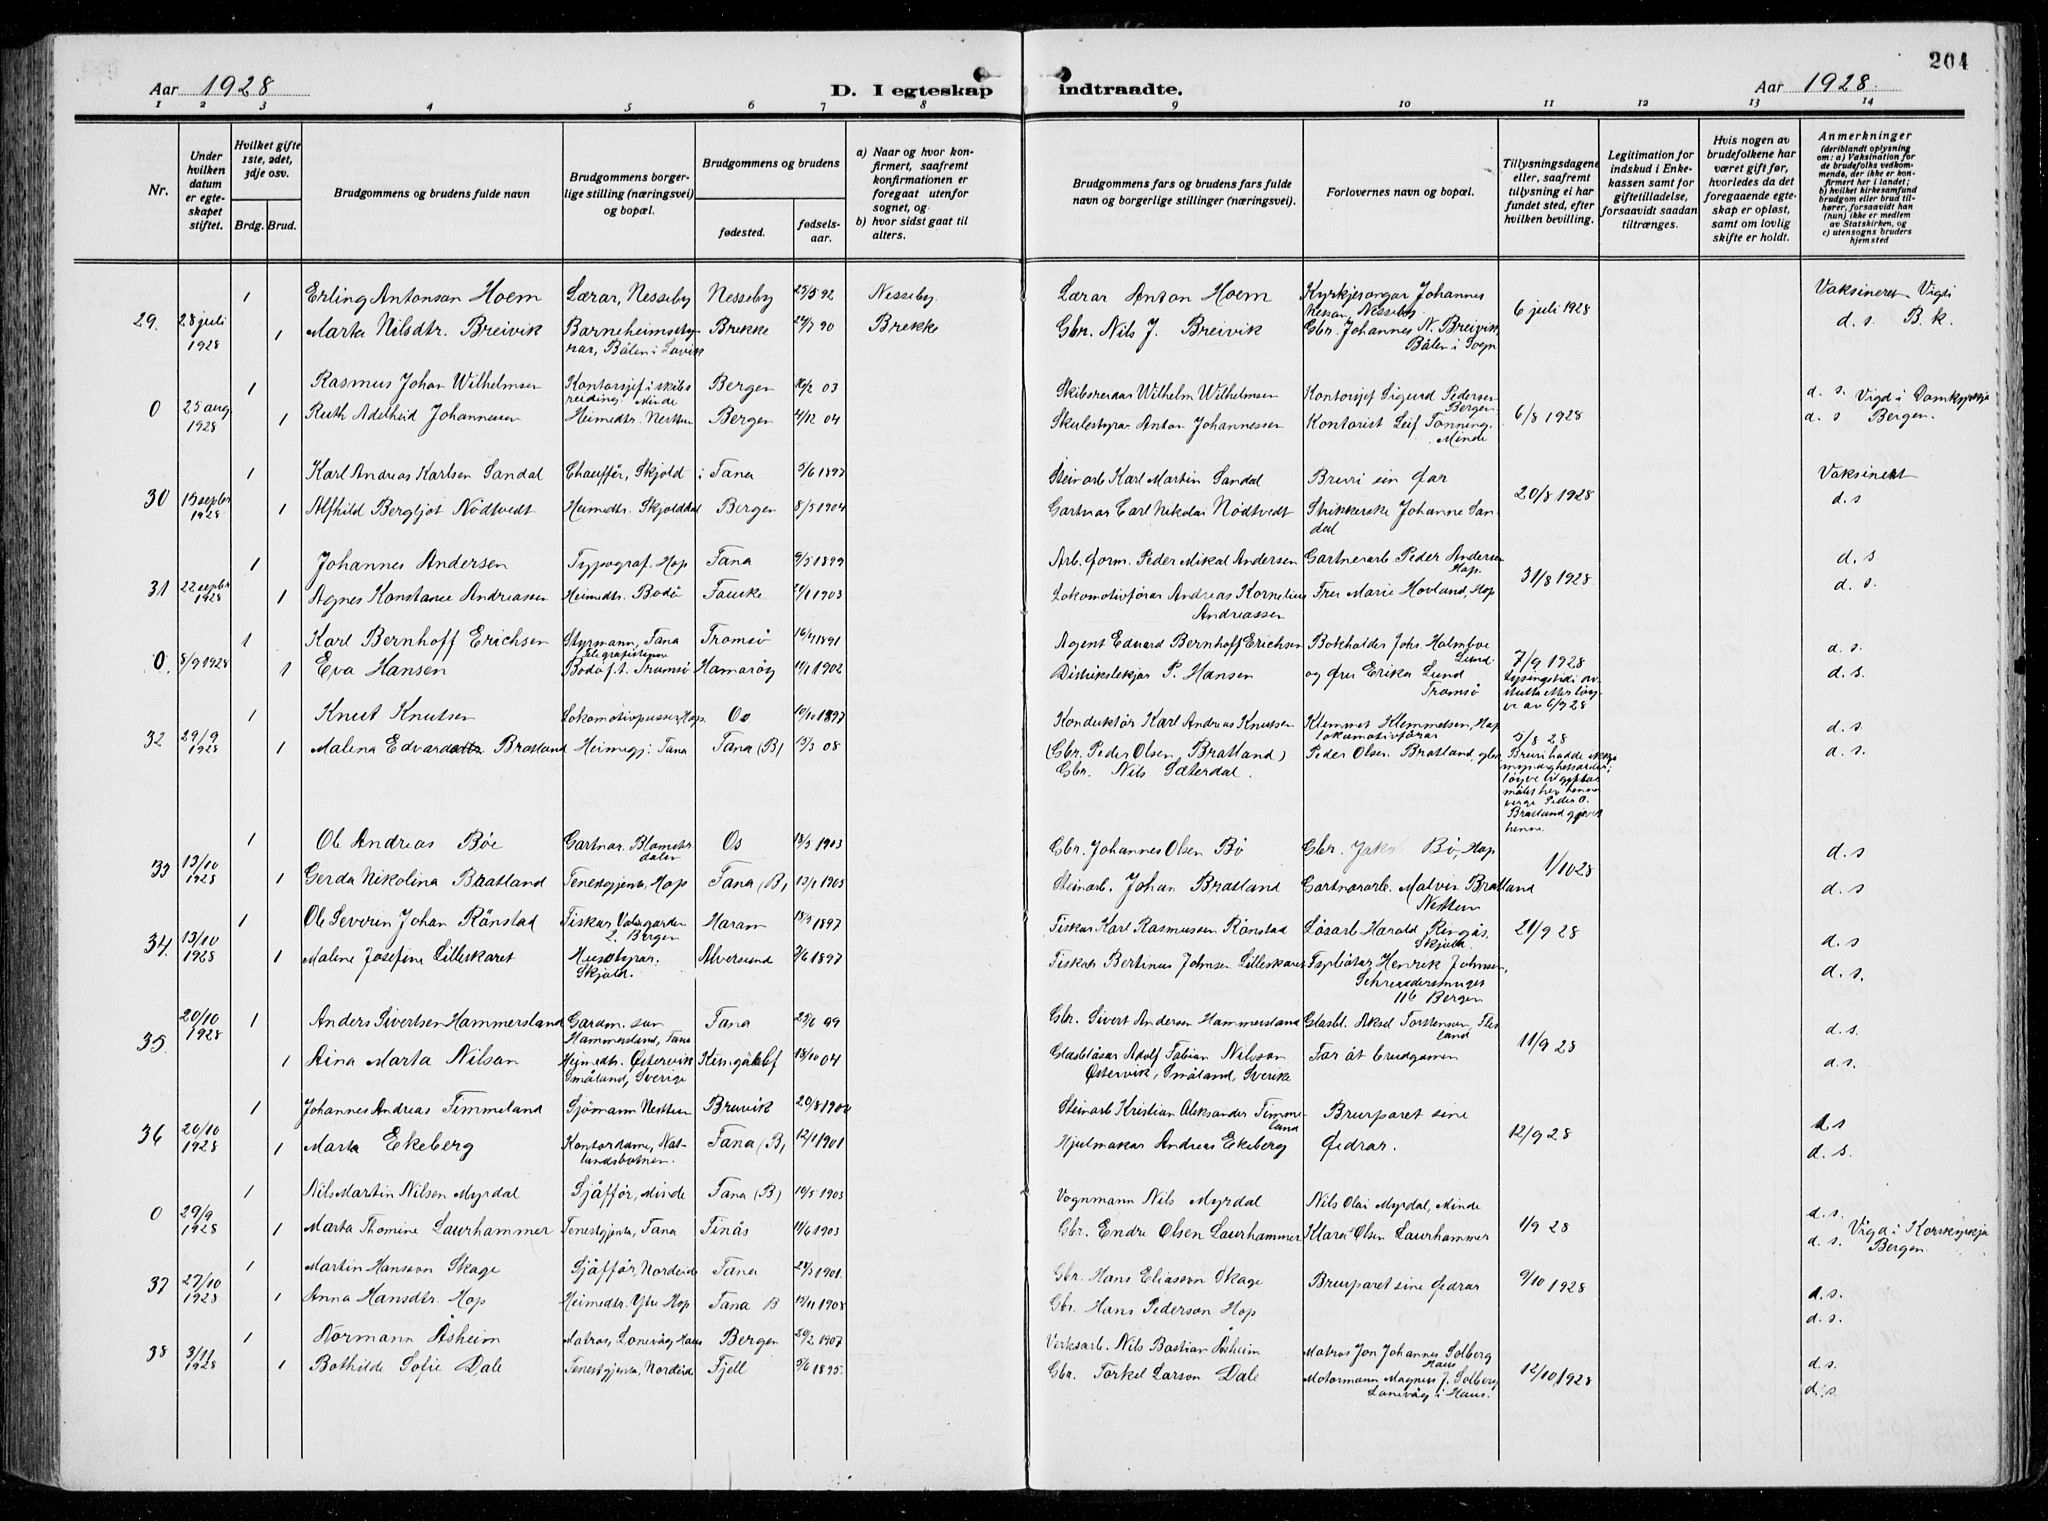 204
Aar 1928
D. I egteskap indtraadte.
Aar 1928
1 2 3 4 5 6 7 8 9 10 11 12 13 14
Nr.
Under hvilken datum er egteskapet stiftet.
Hvilket gifte 1ste, 2det, 3dje osv.
Brdg. Brud.
Brudgommens og brudens fulde navn
Brudgommens borgerlige stilling (næringsvei) og bopæl.
Brudgommens og brudens
fødested.
fødselsaar.
a) Naar og hvor konfirmert, saafremt konfirmationen er foregaat utenfor sognet, og
b) hvor sidst gaat til alters.
Brudgommens fars og brudens fars fulde navn og borgerlige stillinger (næringsvei).
Forlovernes navn og bopæl.
Tillysningsdagene eller, saafremt tillysning ei har fundet sted, efter hvilken bevilling.
Legitimation for indskud i Enkekassen samt for giftetilladelse, forsaavidt saadan tiltrænges.
Hvis nogen av brudefolkene har været gift før, hvorledes da det foregaaende egteskap er opløst, samt om lovlig skifte er holdt.
Anmerkninger (deriblandt oplysning om: a) Vaksination for de brudefolks vedkommende, der ikke er konfirmert her i landet; b) hvilket kirkesamfund brudgom eller brud tilhører, forsaavidt han (hun) ikke er medlem av Statskirken, og c) utensogns bruders hjemsted
29. 28 juli 1928
1 Erling Antonson Hoem Lærar, Nesseby Nesseby 25/5 92 Nesseby. Lærar Anton Hoem Kyrkjesongar Johannes Nesseby 6 juli 1928 Vaksineret Vigdi
1 Marta Nilsdtr. Breivik Brekke 24/7 90 Brekke Gbr. Nils J. Breivik Gbr. Johannes N. Breivik Bålen i Sogn d. s. B. k.
0 25 aug. 1928
1 Rasmus Johan Wilhelmsen Kontorsjef i skibsreiding. Minde Bergen 16/2 03 Skibsreidar Wilhelm Wilhelmsen Kontorsjef Sigurd Pedersen Bergen 6/8 1928 d. s. Vigd i Domkyrkja
1 Ruth Adelheid Johannesen Heimedtr. Nesttun Bergen 4/12 04 Skulestyrar Anton Johannessen Kontorist Leif Tonning. Minde d. s Bergen.
30 15 septbr 1928
1 Karl Andreas Karlsen Sandal Chauffør, Skjold i Fana 3/6 1897 Steinarb Karl Martin Sandal Bruri sin far 20/8 1928 Vaksinert
1 Alfhild Bergljot Nødtvedt Heimedtr. Skjolddal Bergen 8/5 1904 Gartnar Carl Nikolai Nødtvedt Strikkerske Johanne Sandal d. s
31 22 septbr 1928
1 Johannes Andersen Typograf. Hop Fana 9/5 1899 Arb. form. Peder Mikal Andersen Gartnerarb Peder Andersen Hop. 31/8 1928 d. s
1 Agnes Konstance Andreassen Heimedtr. Bodø Fauske 1903 Lokomotivførar Andreas Kornelius Andreassen Frk Marie Hovland, Hop d. s.
0. 8/9 1928
1 Karl Bernhoff Erichsen Styrmann, Fana Tromsø 16/4 1891 Agent Edvard Bernhoff Erichsen Bokholder Johs Holmboe Lund. 7/9 1928 d. s.
1 Eva Hansen Bodø f. t. Tromsø Hamarøy 1902 Distrikslækjar P. Hansen og fru Erika Lund Tromsø d. s.
32 29/9 1928
1 Knut Knutsen Lokomotivpusser, Hop. Os 1897 Konduktør Karl Andreas Knutsen Klemmet Klemmetsen, Hop lokomotivførar 3/8 28 d. s.
1 Malena Edvardsdtr Bratland Heimegj. Fana Fana (B) 13/3 08 (Gbr. Peder Olsen Bratland) Gbr. Nils Sæterdal. Peder Olsen Bratland, gbr Bruri hadde ikkje verge Peder O. Bratland henne. d. s.
33 13/10 1928
1 Ole Andreas Bøe Gartnar. Blomsterdalen Os 18/3 1903 Gbr. Johannes Olsen Bø Gbr. Bø, Hop 1/10 28 d. s
1 Gerda Nikolina Bratland Tenestgjenta, Hop Fana (B) 13/1 1903 Steinarb. Johan Bratland Gartnararb. Malvin Bratland Nesttun d. s
34. 13/10 1928
1 Ole Severin Johan Rønstad Fiskar, Bergen Haram 18/9 1897 Fiskar Karl Rasmussen Rønstad Løsarb Harald Ringås. Skjold. 21/9 28 d. s
1 Malene Josefine Lilleskaret Husstyrar. Skjold. Alversund 2/6 1897 Fiskar Bertinus Johnsen Lilleskaret Henrik Johnsen, 116 Bergen d. s.
35. 20/10 1928
1 Anders Sivertsen Hammersland Gardm. son Hammersland, Fana Fana 99 Gbr. Sivert Andersen Hammersland Glasbl. Aksel Torstensen, Flesland 11/9 28 d. s.
1 Aina Marta Nilson Heimedtr. Østervik Småland, Sverige 18/10 04 Glasblåsar Adolf Fabian Nilsson Østervik, Småland, Sverike Far åt brudgomen d. s.
36 20/10 1928
1 Johannes Andreas Timmeland Sjømann Nesttun Bruvik 20/8 1900 Steinarb Kristian Aleksander Timmeland Brurparet sine 12/9 28 d. s
1 Marta Ekeberg Kontordame, Natlandsbotnen. Fana (B) 12/1 1901 Hjulmakar Andreas Ekeberg fedrar. d. s.
0 29/9 1928
1 Nils Martin Nilsen Myrdal Sjåffør, Minde Fana (B) 10/5 1903 Vognmann Nils Myrdal Nils Olai Myrdal, Minde 1/9 28 d. s.
1 Marta Thomine Laurhammer Tenestgjenta, Fana Finås 1903 Gbr. Endre Olsen Laurhammer Klara Olsen Laurhammer d. s. Vigd i Korskyrkja Bergen.
37 27/10 1928
1 Martin Hansson Skage Sjåffør, Nordeide Fana 24/3 1901. Gbr. Hans Eliasson Skage Brurparet sine fedrar 9/10 1928 d. s.
1 Anna Hansdtr. Hop Heimedtr. Ytre Hop Fana B 1908 Gbr. Hans Pederson Hop d. s.
38 3/11 1928
1 Normann Åsheim Matros, Lonevåg Haus Bergen 20/2 1907 Verksarb. Nils Bastian Åsheim Matros Jon Johannes Solberg Haus 12/10 1928 d. s.
1 Bothilde Sofie Dale Tenestgjenta, Nordeide Fjell 9/6 1895. Gbr. Torkel Larson Dale Motormann Magnus J. Solberg Lonevåg i Haus. d. s.